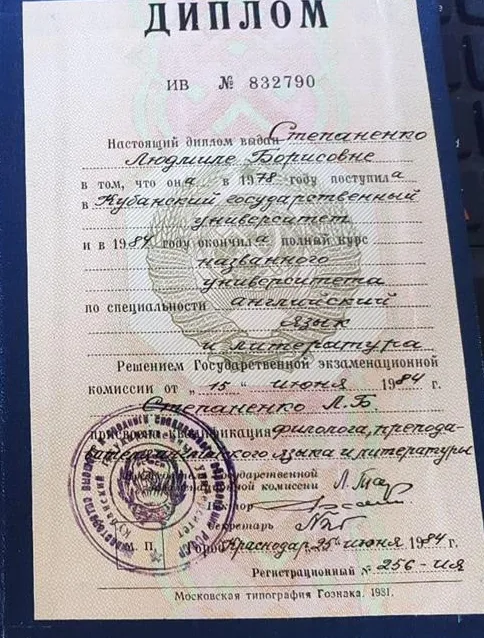 ДИПЛОМ
ИВ № 832790
Настоящий диплом выдан Степаненко
Людмиле Борисовне
в том, что она в 1978 году поступила
в Кубанский государственный
университет
и в 1984 году окончила полный курс
названного
университета
по специальности английский
язык
и литература
Решением Государственной экзаменационной
комиссии от „15“ июня 1984 г.
Степаненко Л.Б.
присвоена квалификация филолога, препода-
вателя английского языка и литературы
Председатель Государственной
экзаменационной комиссии
Ректор
Секретарь
М. П. Город Краснодар 25 июня 1984 г.
Регистрационный № 256-ия
Московская типография Гознака. 1981.